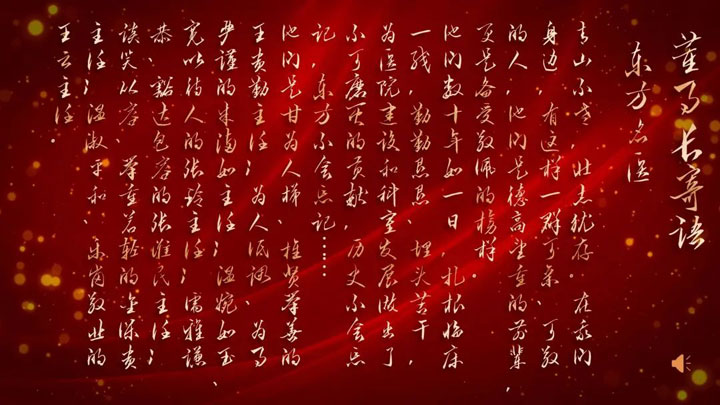 董事长寄语
东方名医
青山不老，壮志犹存。在我们
身边，有这样一群可亲、可敬
的人，他们是德高望重的前辈，
更是备受敬佩的榜样。
他们数十年如一日，扎根临床
一线，勤勤恳恳、埋头苦干，
为医院建设和科室发展做出了
不可磨灭的贡献，历史不会忘
记，东方不会忘记……
他们是甘为人梯、推贤举善的
王贵勤主任；为人低调、为事
严谨的朱海如主任；温婉如玉、
宽以待人的张玲主任；儒雅谦
恭、豁达包容的张维民主任；
谈笑从容、举重若轻的金保贵
主任；温淑平和、乐岗敬业的
王云主任。